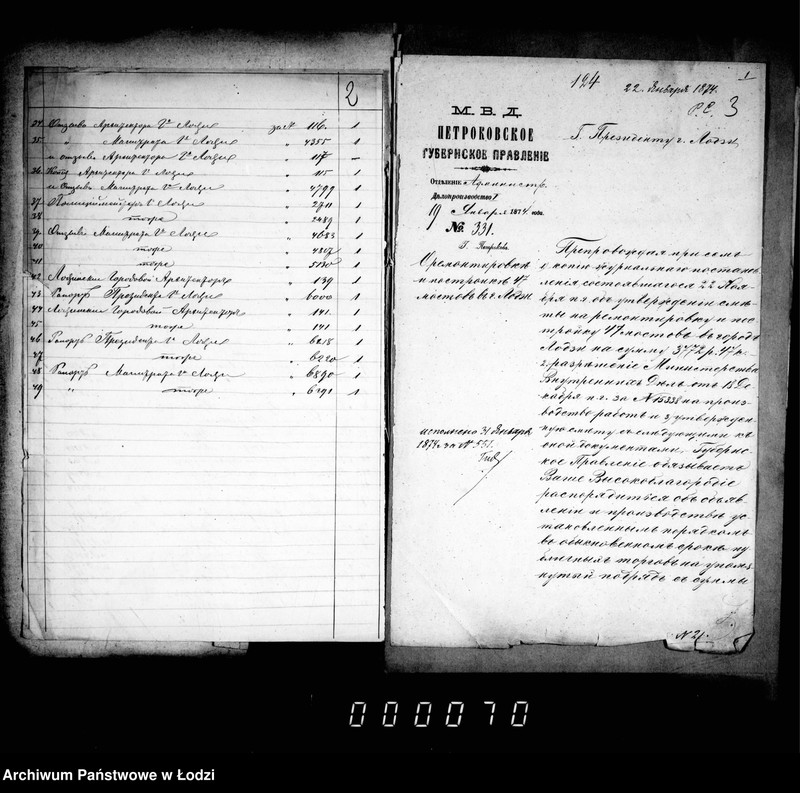 2
34 Отзывъ Архитектора Гᵃ Лодзи за № 116. 1
35 " Магистрата Гᵃ Лодзи " 4355 1
и отзывъ Архитектора Гᵃ Лодзи " 117 –
36 Архитектора Гᵃ Лодзи " 115 1
и Отзывъ Магистрата Гᵃ Лодзи " 4799 1
37 Полицiймейстера Гᵃ Лодзи " 2711 1
38 тоже " 2489 1
39 Отзывъ Магистрата Гᵃ Лодзи " 4683 1
40 тоже " 1
41 тоже " 1
42 Лодзинскiй Городовой Архитекторъ " 139 1
43 Рапортъ Президента Гᵃ Лодзи " 6000 1
44 Лодзинскiй Городовой Архитекторъ " 141. 1
45 тоже " 141 1
46 Рапортъ Президента Гᵃ Лодзи " 6218 1
47 тоже " 6220 1
48 Рапортъ Магистрата Гᵃ Лодзи " 6890 1
49 " тоже " 6191 1
1
194 22 Января 1874.
Р.С. 3
М. В. Д.
ПЕТРОКОВСКОЕ
ГУБЕРНСКОЕ ПРАВЛЕНIЕ
Отдѣленiе Администр.
Дѣлопроизводство
19 Января 1874 года
№ 331.
Г. Петроковъ
О ремонтировкѣ
и постройкѣ 47
мостовъ въ г. Лодзи
исполнено 31 Января
1874 за № 551.
Г. Президенту г. Лодзи
Препровождая при семъ
копiю журнальнаго постанов
ленiя состоявшагося 22 Ноя
бря объ утвержденiи смѣ
ты на ремонтировку и пос
тройку 47 мостовъ въ городѣ
Лодзи на сумму 3772 р. 47 к.
2, разрѣшенiе Министерства
Внутреннихъ Дѣлъ отъ 18 Де
кабря п. г. за № 15338 на произ
водство работъ и 3, утвержден
ную смѣту съ слѣдующими къ
оной документами, Губернс
кое Правленiе обязываетъ
Ваше Высокоблагородiе
распорядиться объ объяв
ленiи и производствѣ ус
тановленнымъ порядкомъ
въ обыкновенномъ срокѣ пу
бличныхъ торговъ на упомя
нутый подрядъ съ суммы
№ 21.
000070
Archiwum Państwowe w Łodzi